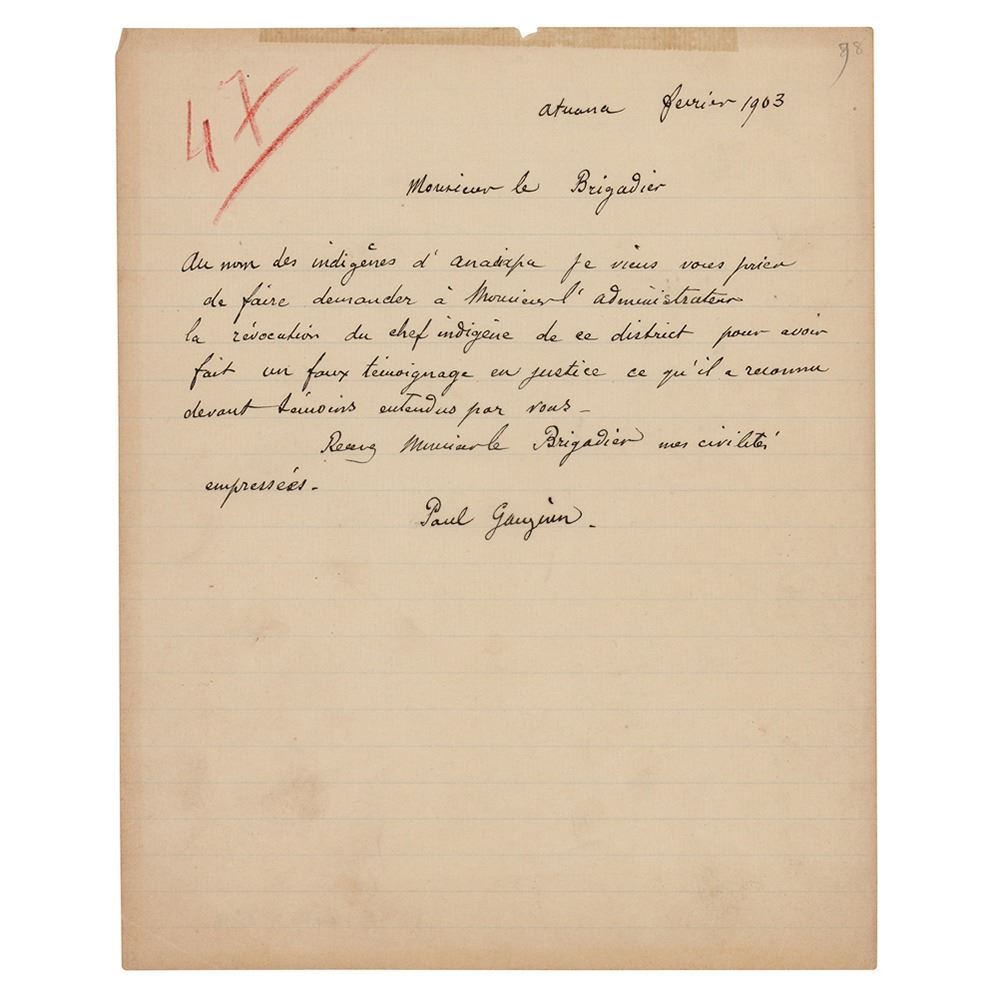 47
98
Atuana février 1903
Monsieur le Brigadier
Au nom des indigènes d'anaiapa je viens vous prier
de faire demander à Monsieur l'administrateur
la révocation du chef indigène de ce district pour avoir
fait un faux témoignage en justice ce qu'il a reconnu
devant témoins entendus par vous _
Recevez Monsieur le Brigadier mes civilités
empressées.
Paul Gauguin _